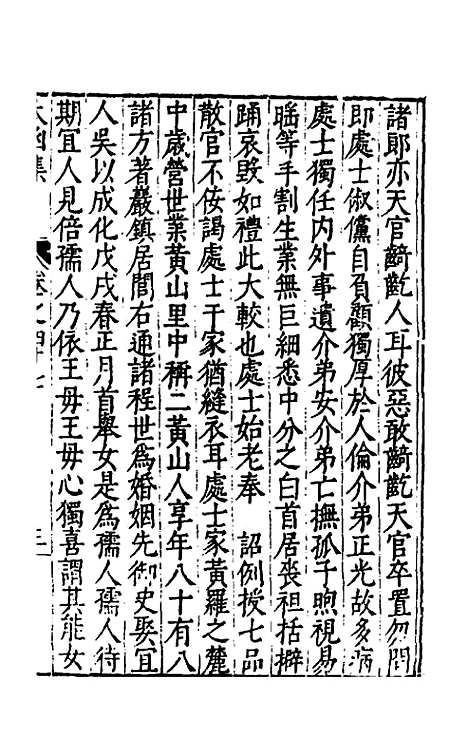 諸郎亦天官齮齕人耳彼惡敢齮齕天官卒置勿問
即處士俶儻自負顧獨厚於人倫介弟正光故多病
處士獨任内外事遺介弟安介弟亡撫孤子煦視易
暚等手割生業無巨細悉中分之白首居喪袒括擗
踊哀毀如禮此大較也處士始老奉　詔例授七品
散官不佞謁處士于家猶縫衣耳處士家黃羅之麓
中歲營世業黃山里中稱二黃山人享年八十有八
諸方著嚴鎮居閭右通諸程世爲婚姻先御史娶宜
人吳以成化戊戌春正月首舉女是爲孺人孺人待
期宜人見倍孺人乃依王毋王毋心獨喜謂其能女
太函集
卷之四十七
三